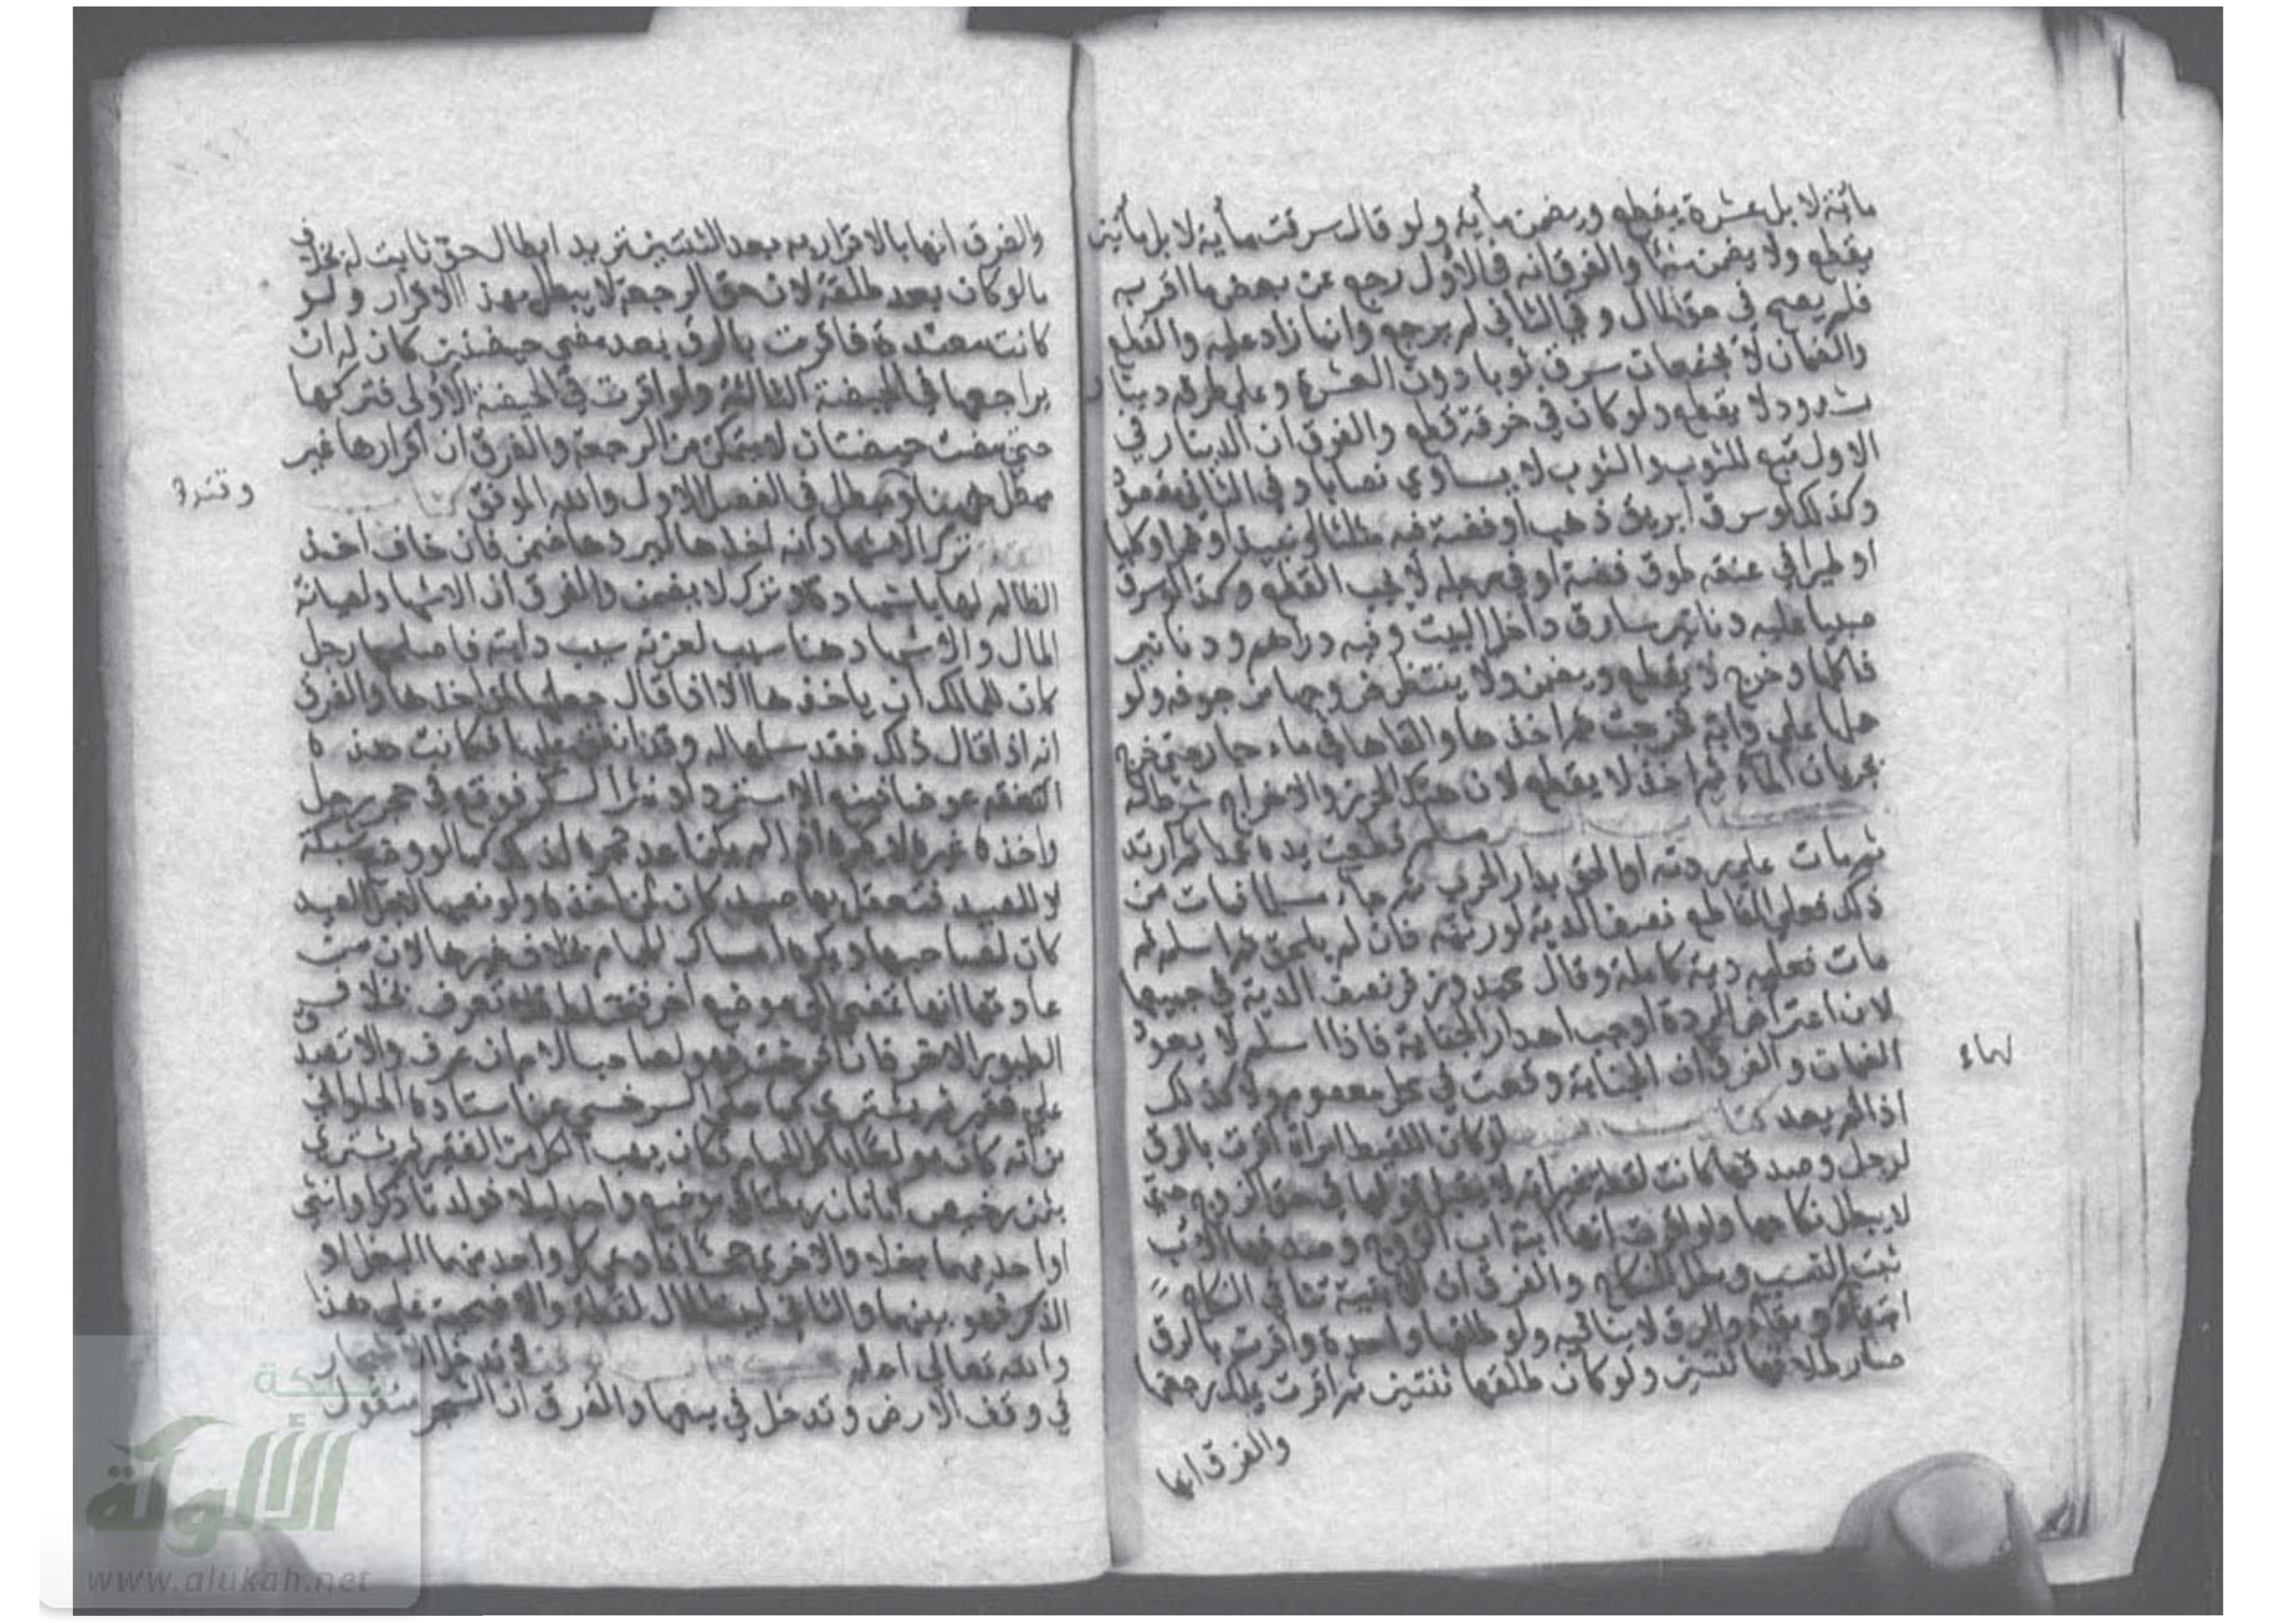 مائة لا بل عشرة يقطع ويضمن مأية ولو قال سرقت مأية لا بل مأتين
يقطع ولا يضمن شيئا والفرق انه في الأول رجع عن بعض ما اقر به
فلم يصح في حق المال وفي الثاني لم يرجع وانما زاد عليه والقطع
والضمان لا يجتمعان سرق ثوبا دون العشرة وعلى طرفه دينار
مشدود لا يقطع ولو كان في خرقة قطع والفرق ان الدينار في
الاول تبع للثوب والثوب لا يساوي نصابا وفي الثاني مقصود
وكذلك لو سرق ابريق ذهب او فضة فيه
او طيرا في عنقه طوق فضة او في رجله لا يجب القطع وكذا لو سرق
صبيا عليه دنانير سارق داخل البيت وفيه دراهم ودنانير
فاكلها وخرج لا يقطع ويضمن ولا ينتظر خروجها من جوفه ولو
حمل على دابة فخرجت ثم اخذها والقاها في ماء جار حتى خرج
بجريان الماء ثم اخذ لا يقطع لان هتك الحرز والاخراج شرط
مسلم قطعت يده عمدا ثم ارتد
ثم مات على ردته او لحق بدار الحرب ثم جاء مسلما فمات من
ذلك فعلى القاطع نصف الدية لورثته فان لم يلحق ثم اسلم ثم
مات فعليه دية كاملة وقال محمد وزفر نصف الدية في جميعها
لان اعتراض الردة اوجب اهدار الجناية فاذا اسلم لا يعود
الضمان والفرق ان الجناية وقعت في محل معصوم ولا كذلك
اذا لم يعد لو كان اللقيط امراة اقرت بالرق
لرجل وصدقها كانت امة لا يقبل قولها في حق الزوج حتى
لا يبطل نكاحها ولو اقرت انها ابنة اب الزوج وصدقها الاب
ثبت النسب وبطل النكاح والفرق ان الاختية تنافي النكاح
ابتداء وبقاء والرق لا ينافيه ولو طلقها واحدة واقرت بالرق
صار طلاقها ثنتين ولو كان طلقها ثنتين ثم اقرت يملك رجعتها
والفرق انها
لهاء
والفرق انها بالاقرار به بعد الثنتين تريد ابطال حق ثابت له بخلاف
مالو كان بعد طلقة لان حق الرجعة لا يبطل بهذا الاقرار ولو
كانت معتدة فاقرت بالرق بعد مضي حيضتين كان له ان
يراجعها في الحيضة الثالثة ولو اقرت في الحيضة الأولى فتركها
حتى مضت حيضتان لم يتمكن من الرجعة والفرق ان اقرارها غير
مبطل ههنا ومبطل في الفصل الاول والله الموفق
ترك الاشهاد انه اخذها ليردها ضمن فان خاف اخذ
الظالم لها باشهاده وترك لا يضمن والفرق ان الاشهاد لصيانة
المال والاشهاد هنا سبب سيب دابته فاصلحها رجل
كان للمالك ان ياخذها الا اذا قال جعلتها لمن اخذها والفرق
انه اذا قال ذلك فقد سلمها له وقد انفق عليها فكانت هذه
النفقة عوضا فيمنع الاسترداد نثر السكر فوقع في حجر رجل
واخذه غيره مالو وضع شبكة
لا للصيد فتعقل بها صيد كان لمن اخذه ولو نصبها لاجل الصيد
كان لصاحبها ويكره امساك الحمام بخلاف غيرها لان من
عادتها انها تمضي الى موضع اخر فتختلط فلا تعرف بخلاف
الطيور الاخر فان فرخت فهو لصاحب الام ان عرف والا تصدق
على فقير ثم يشتري كما حكى السرخسي عن استاذه الحلواني
من انه كان مولعا باكل الحمام فكان يهب الكل من الفقير ثم يشتري
بثمن رخيص اتانان ربطتا في موضع واحد ليلا فولدتا ذكرا وانثى
او احديهما بغلا والاخرى جحشا فادعى كل واحد منهما البغل او
الذكر فهو بينهما والثاني لبيت المال لقطة والاضحية على هذا
والله تعالى اعلم لا تدخل الاشجار
في وقف الارض وتدخل في بيعها والفرق ان الشجر منقول
شبكة
الألوكة
www.alukah.net